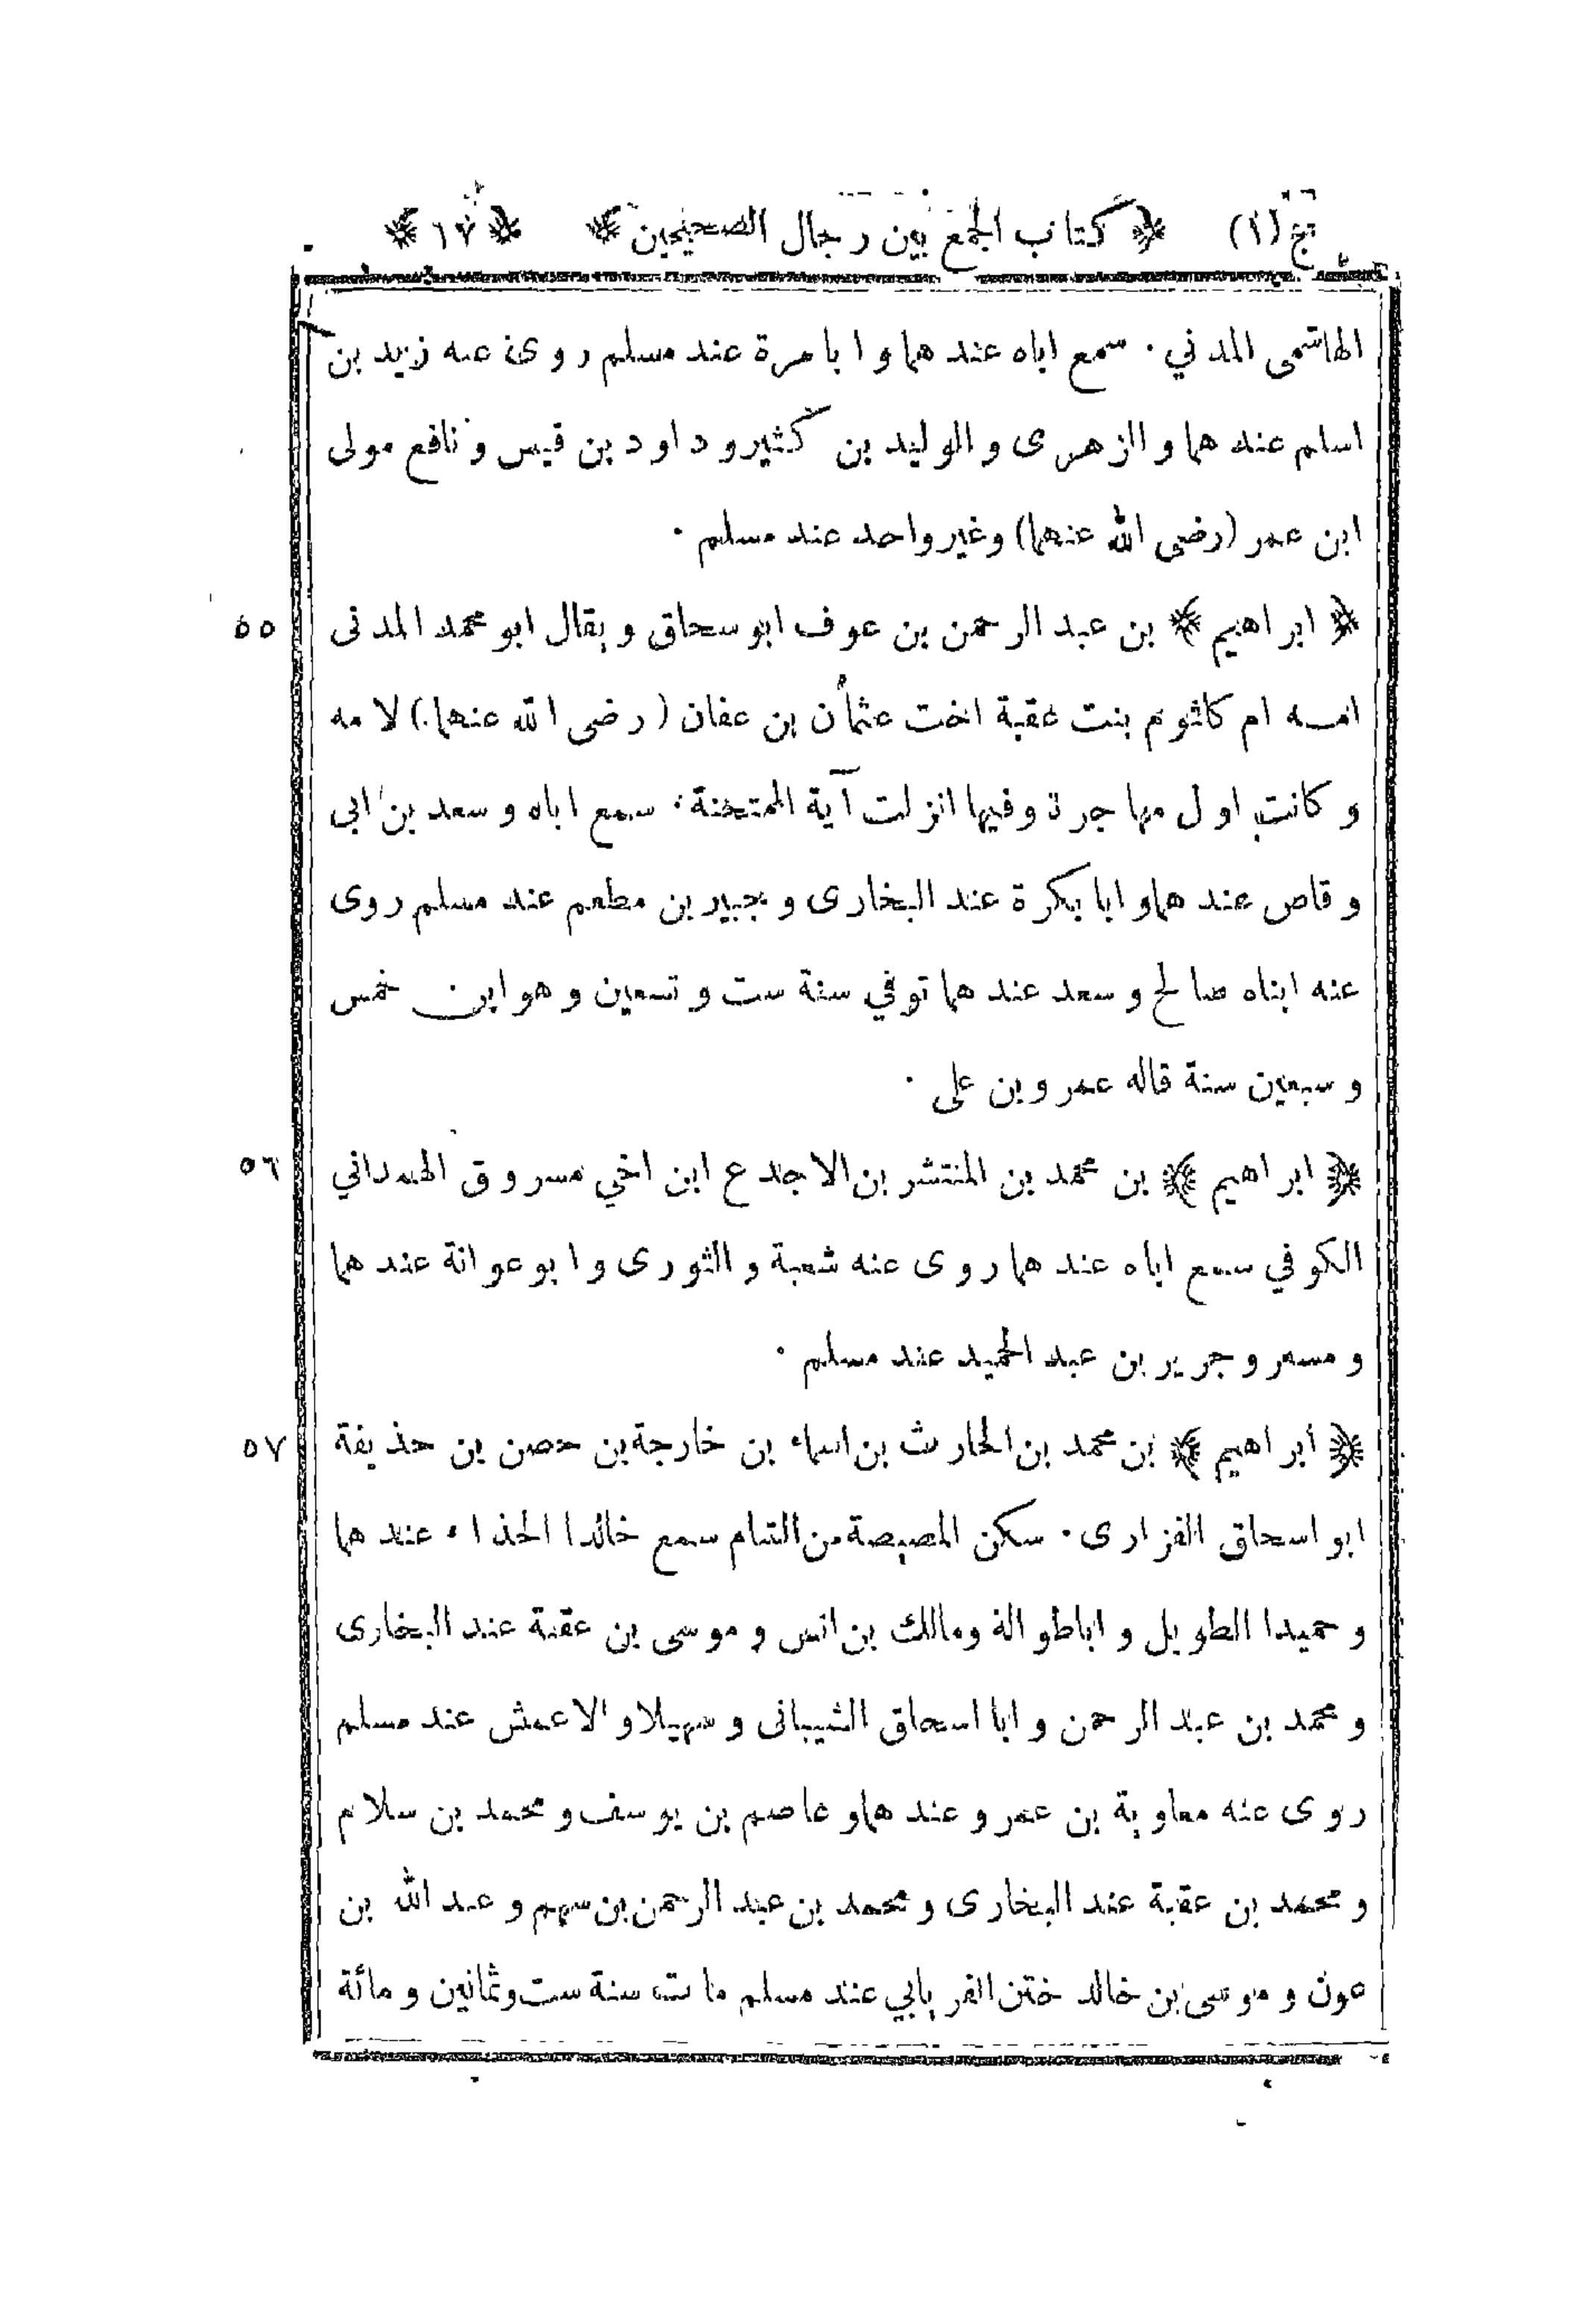 ج (١) ﴿ كتاب الجمع بين رجال الصحيحين ﴾ ﴿ ١٧ ﴾
الهاشمى المدني ٠ سمع اباه عندهما وابا مرة عند مسلم روى عنه زيد بن
اسلم عندهما والزهرى والوليد بن كثير وداود بن قيس ونافع مولى
ابن عمر (رضى الله عنهما) وغير واحد عند مسلم ٠
٥٥ ﴿ ابراهيم ﴾ بن عبد الرحمن بن عوف ابو سحاق ويقال ابو محمد المدنى
امه ام كلثوم بنت عقبة اخت عثمان بن عفان (رضى الله عنهما) لامه
وكانت اول مهاجرة وفيها انزلت آية الممتحنة ٠ سمع اباه وسعد بن ابى
وقاص عندهما وابا بكرة عند البخارى وجبير بن مطعم عند مسلم روى
عنه ابناه صالح وسعد عندهما توفي سنة ست وتسعين وهو ابن خمس
وسبعين سنة قاله عمرو بن على ٠
٥٦ ﴿ ابراهيم ﴾ بن محمد بن المنتشر بن الاجدع ابن اخي مسروق الهمداني
الكوفي سمع اباه عندهما روى عنه شعبة والثورى وابو عوانة عندهما
ومسعر وجرير بن عبد الحميد عند مسلم ٠
٥٧ ﴿ ابراهيم ﴾ بن محمد بن الحارث بن اسماء بن خارجة بن حصن بن حذيفة
ابو اسحاق الفزارى ٠ سكن المصيصة من الشام سمع خالدا الحذاء عندهما
وحميدا الطويل واباطوالة ومالك بن انس وموسى بن عقبة عند البخارى
ومحمد بن عبد الرحمن وابا اسحاق الشيبانى وسهيلا والاعمش عند مسلم
روى عنه معاوية بن عمرو عندهما وعاصم بن يوسف ومحمد بن سلام
ومحمد بن عقبة عند البخارى ومحمد بن عبد الرحمن بن سهم وعبد الله بن
عون وموسى بن خالد ختن الفريابي عند مسلم مات سنة ست وثمانين ومائة